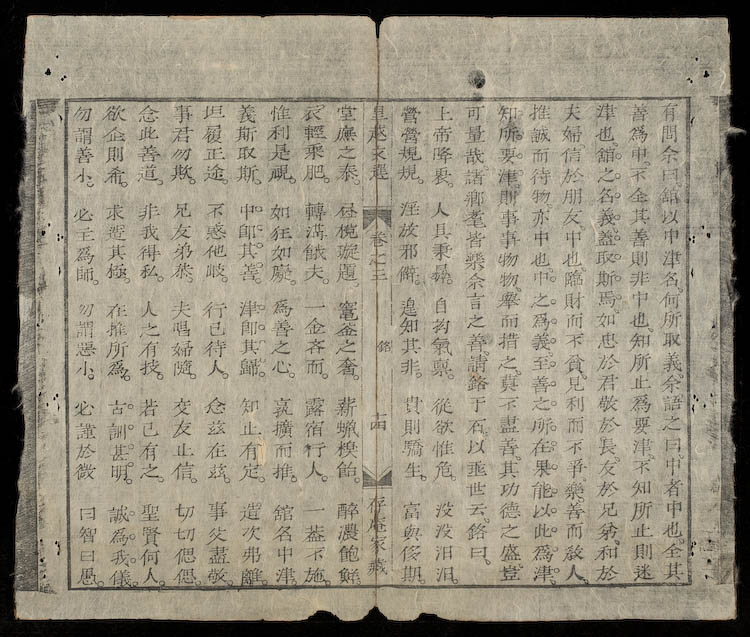 有問余曰。舘以中津名。何所取義。余語之曰。中者中也。全其
善爲中。不全其善則非中也。知所止爲要津。不知所止則迷
津也。舘之名義蓋取斯焉。如忠於君。敬於長。友於兄弟。和於
夫婦。信於朋友。中也。臨財而不貪。見利而不爭。樂善而敎人。
推誠而待物。亦中也。中之爲義。至善之所在。果能以此爲津。
知所要津。則事事物物。舉而措之。莫不盡善。其功德之盛。豈
可量哉。諸鄉耆皆樂余言之善。請銘于石。以垂世云。銘曰。
上帝降衷。人其秉彞。自拘氣稟。從欲惟危。没没汨汨。
營營規規。淫放邪僻。遑知其非。貴則驕生。富與侈期。
皇越文選 卷之三 銘 十四 存庵家藏
堂廡之泰。榥璇題。竈釜之奢。薪蝋飴。醉濃飽鮮。
衣輕乘肥。轉溝餓夫。一金吝而。露宿行人。一蓋不施。
惟利是覗。如狂如癡。爲善之心。孰擴而推。舘名中津
義斯取斯。中卽其善。津卽其歸。知止有定。造次弗離。
坦履正途。不惑他岐。行已待人。念兹在兹。事父盡敬
事君勿欺。兄友弟恭。夫唱婦隨。交友止信。切切偲偲。
念此善道。非我得私。人之有技。若已有之。聖賢何人。
欲企則希。求造其極。在推所爲。古訓甚明。誠爲我儀。
勿謂善小。必主爲師。勿謂惡小。必謹於微。曰智曰愚。